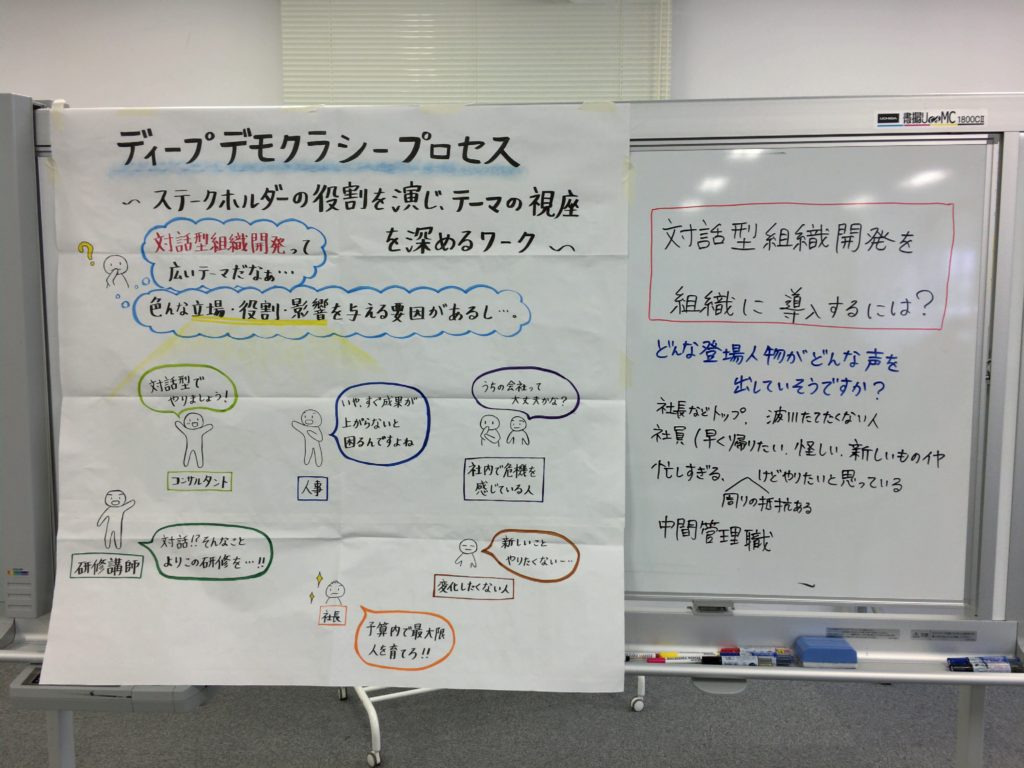 ディープデモクラシープロセス
〜 ステークホルダーの役割を演じ、テーマの視座
を深めるワーク 〜
?
対話型組織開発って
広いテーマだなぁ…
色んな立場・役割・影響を与える要因があるし…。
対話型で
やりましょう!
コンサルタント
いや、すぐ成果が
上がらないと
困るんですよね
人事
うちの会社って
大丈夫かな?
社内で危機を
感じている人
研修講師
対話!?そんなこと
よりこの研修を…!!
新しいこと
やりたくない…
変化したくない人
社長
予算内で最大限
人を育てろ!!
UCHIDA
1800CⅡ
対話型組織開発を
組織に導入するには?
どんな登場人物がどんな声を
出していそうですか?
社長などトップ、波風たてたくない人
社員(早く帰りたい、怪しい、新しいものイヤ
忙しすぎる、けどやりたいと思っている
周りの抵抗ある
中間管理職